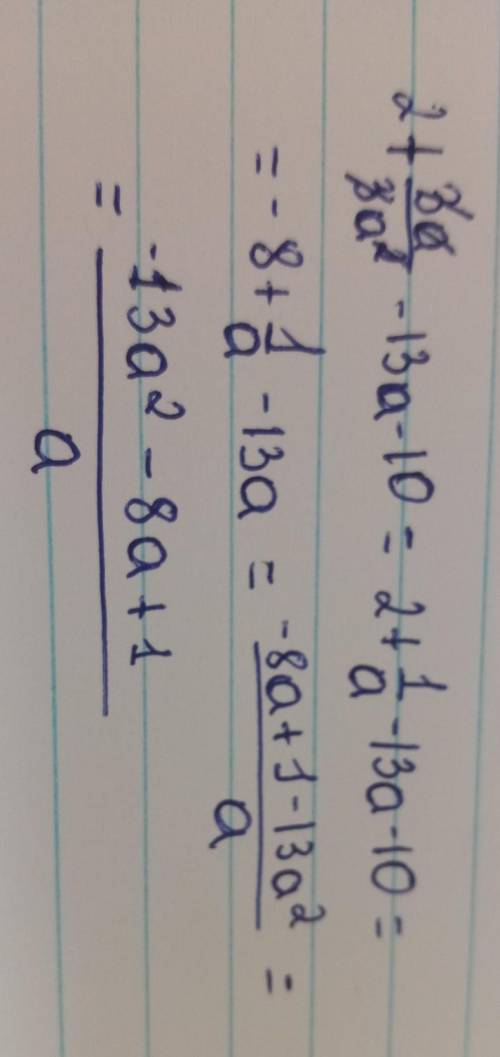 2 + 3a/3a² - 13a - 10 = 2 + 1/a - 13a - 10 =
= - 8 + 1/a - 13a = (-8a + 1 - 13a²)/a =
= (-13a² - 8a + 1)/a